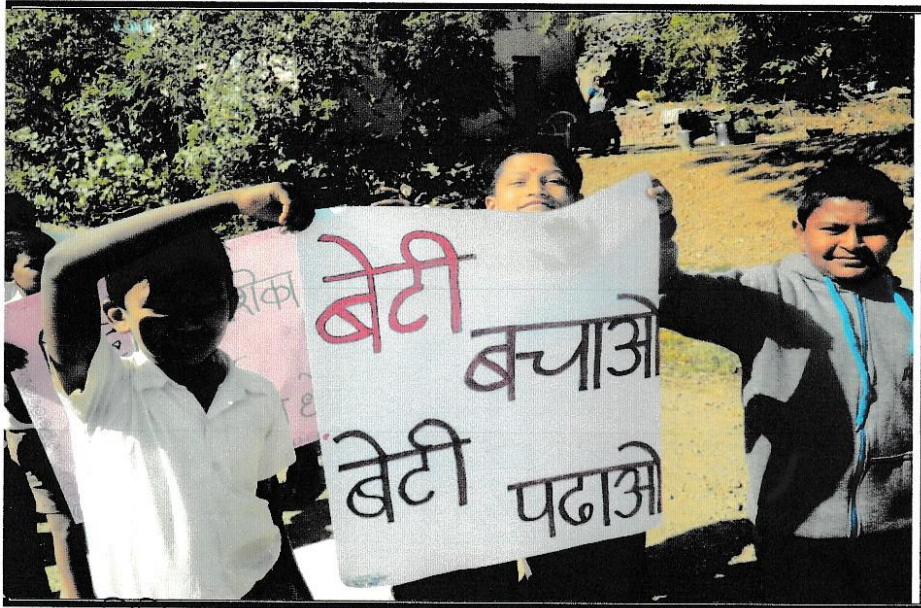 बेटी
बचाओ
बेटी
पढाओ